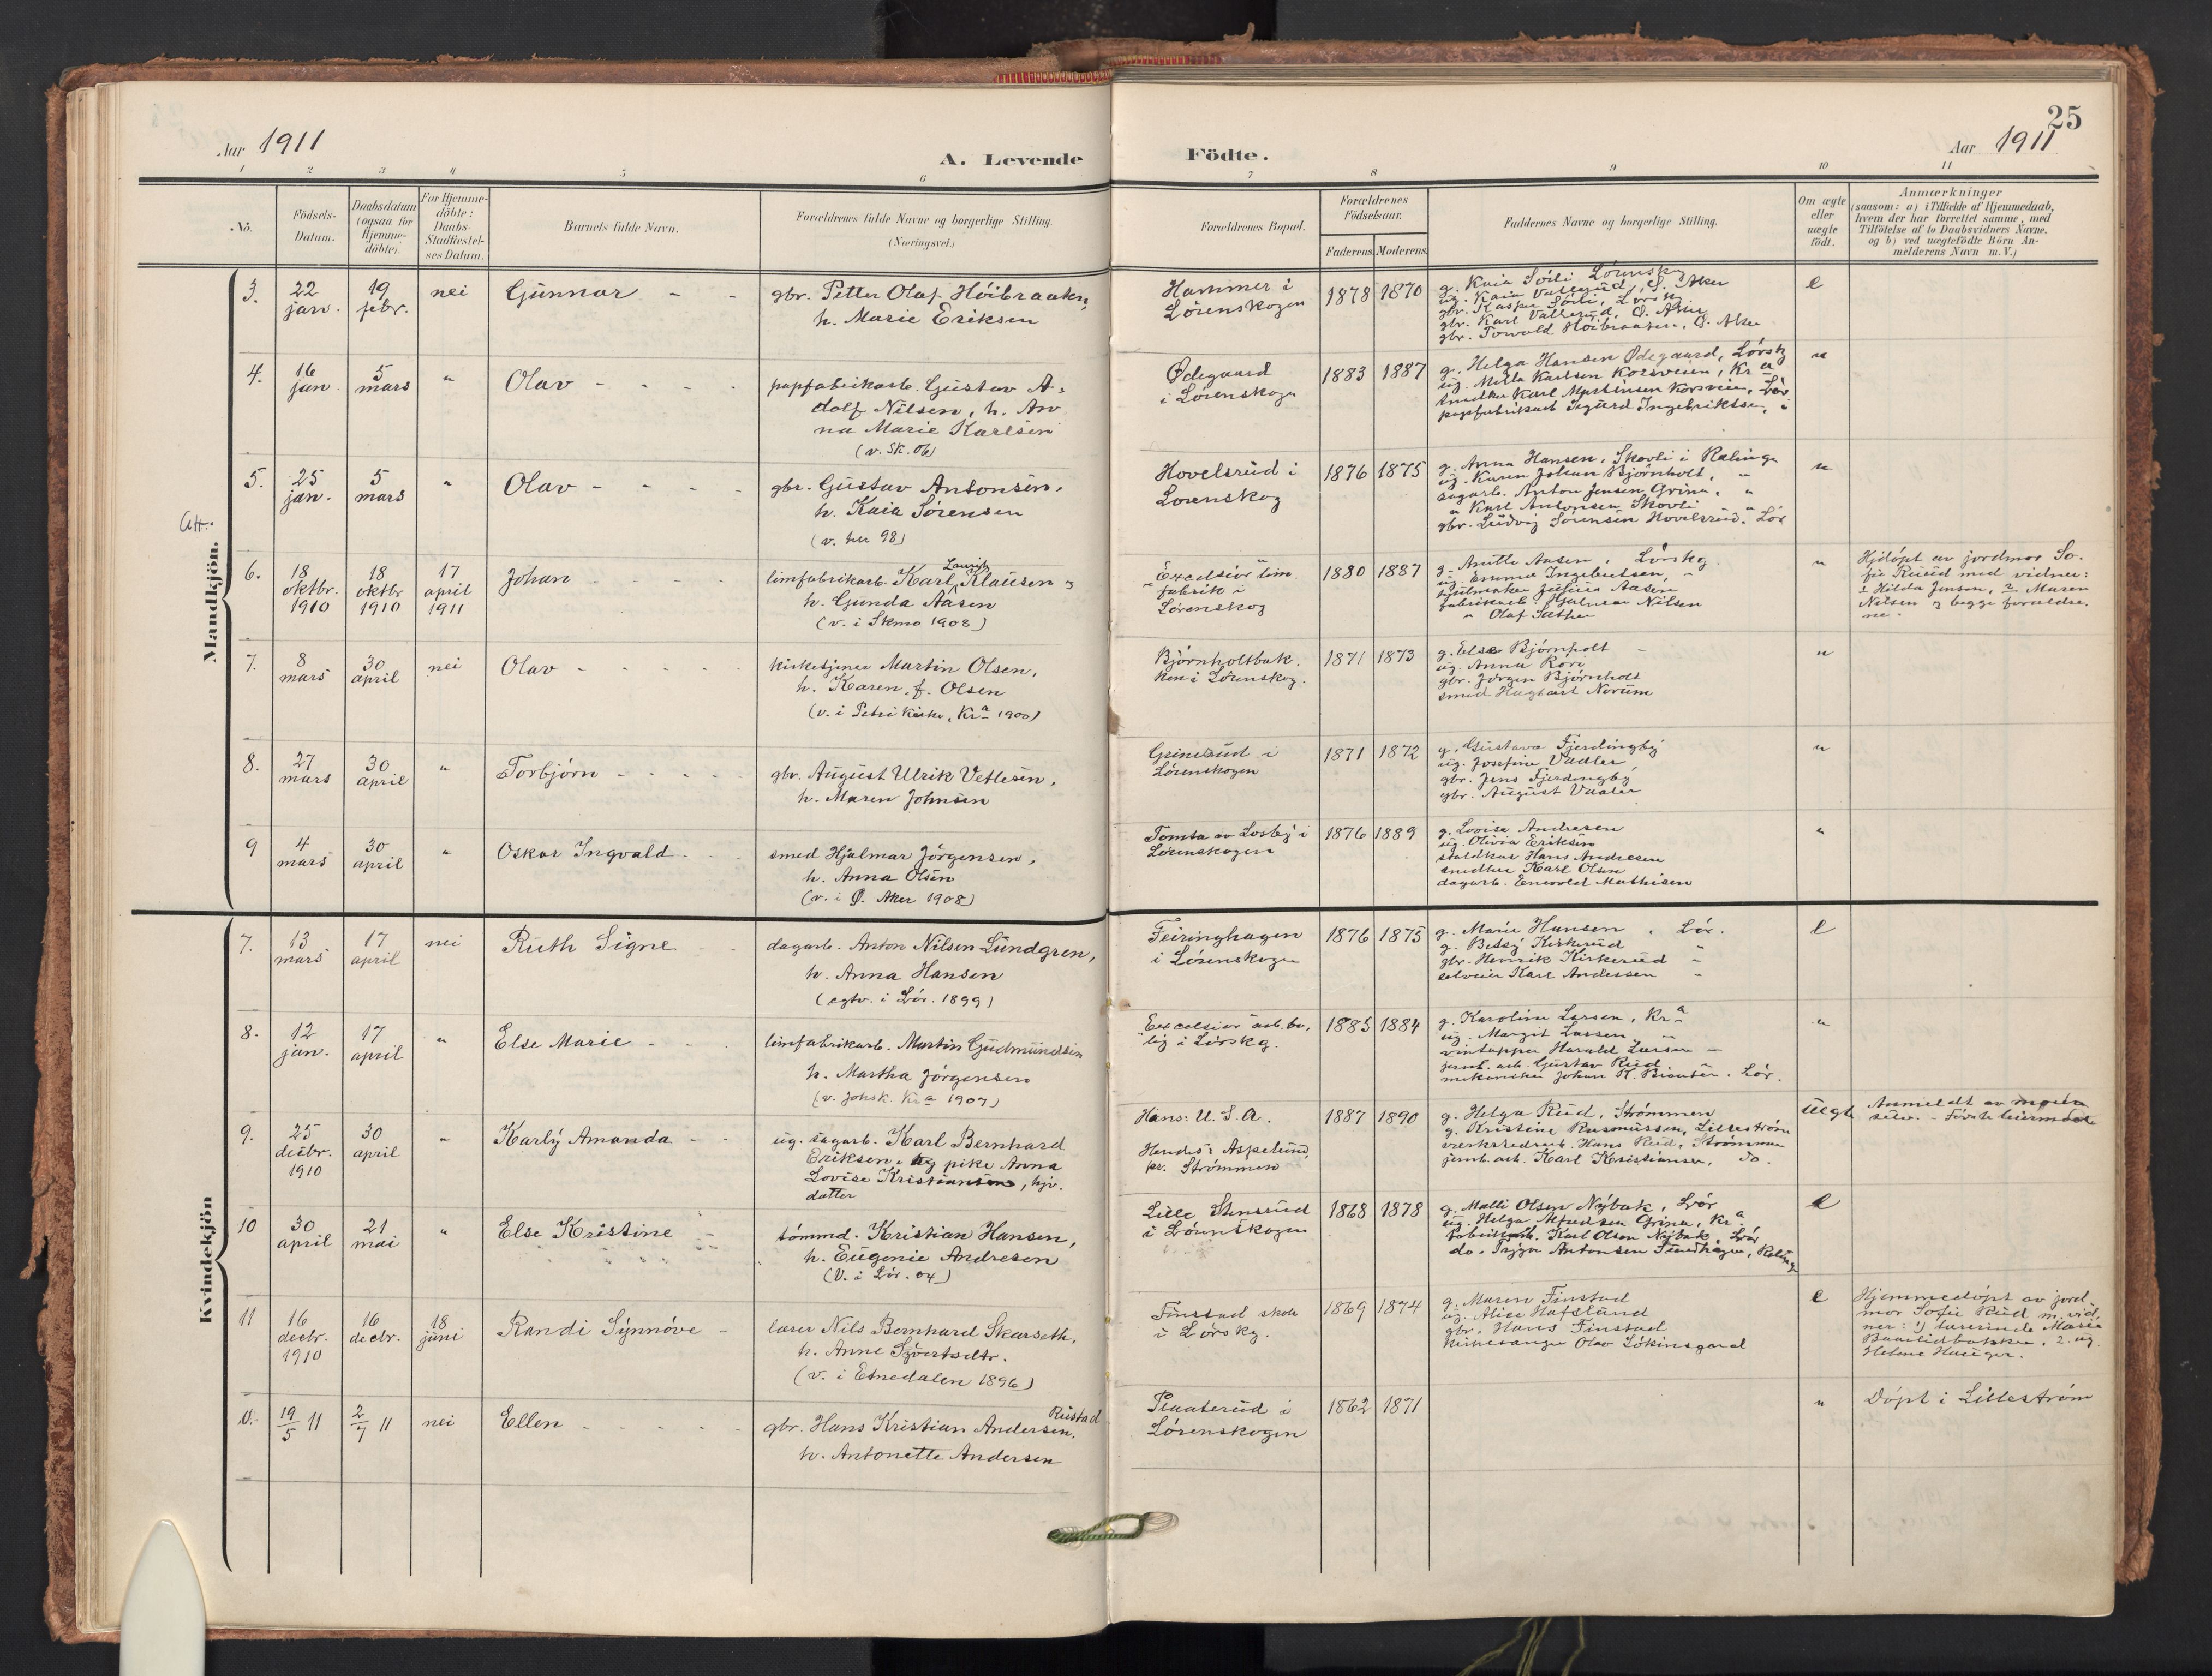 25
Aar 1911
A. Levende
Födte.
Aar 1911
1 2 3 4 5 6 7 8 9 10 11
No.
Födsels-
Datum.
Daabsdatum
(ogsaa for
Hjemme-
döbte).
For Hjemme-
döbte:
Daabs-
Stadfæstel-
ses Datum.
Barnets fulde Navn.
Forældrenes fulde Navne og borgerlige Stilling.
(Næringsvei.)
Forældrenes Bopæl.
Forældrenes
Födselsaar.
Faderens. Moderens.
Faddernes Navne og borgerlige Stilling.
Om ægte
eller
uægte
födt.
Anmærkninger
(saasom: a) i Tilfælde af Hjemmedaab,
hvem der har forrettet samme, med
Tilföielse af to Daabsvidners Navne,
og b) ved uægtefödte Börn An-
melderens Navn m. V.)
Mandkjön.
3.
22
jan.
19
febr.
nei
Gunnar - -
gbr. Petter Olaf Höibraaten,
h. Marie Eriksen
Hammer i
Lörenskogen
1878 1870
g. Kaia Söili Lörenskog
ug. Kaia Vallerud, Ö. Aker
gbr. Kasper Söili, Lörsk
gbr. Karl Vallerud, Ö. Aker
gbr. Torvald Höibraaten, Ö. Aker
e
4.
16
jan.
5
mars
"
Olav - - - -
papfabrikarb. Gustav A-
dolf Nilsen, h. An
na Marie Karlsen
(v. Sk. 06)
Ødegaard
i Lörenskogn
1883 1887
g. Helga Hansen Ødegaard, Lörsk
ug. Milla Karlsen Korsveien, Kra
snedker Karl Martinsen Korsveien, Lör
papfabrikarb Sigurd Ingebriktsen, i
"
5.
25
jan.
5
mars
"
Olav - - - -
gbr. Gustav Antonsen,
h. Kaia Sörensen
(v. her 98)
Hovelsrud i
Lorenskog
1876 1875
g. Anna Hansen, Skovli i Rælinge
ug. Karen Johan Björnholt, "
sagarb. Anton Jensen Grina, "
" Karl Antonsen Skovli "
gbr. Ludvig Sörensen Hovelsrud. Lör
"
6.
18
oktbr.
1910
18
oktbr
1910
17
april
1911
Johan - - - -
limfabrikarb. Karl Laurits Klausen og
h. Gunda Aasen
(v. i Skmo 1908)
"Excelsior" lim
fabrik i
Lörenskog
1880 1887
g. Anette Aasen, Lörskg.
ug. Emma Ingebretsen, "
hjulmaker Julius Aasen
fabrikarb. Hjalmar Nilsen
" Olaf Sæther
"
Hjdöpt av jordmor So-
fie Rusud med vidner:
1 Hilda Jensen, 2 Maren
Nilsen og begge forældre,
ne.
7.
8
mars
30
april
nei
Olav - - - -
kirketjener Martin Olsen,
h. Karen f. Olsen
(v. i Petri kirke, Kra 1900)
Björnholtbak-
ken i Lörenskog.
1871 1873
g. Else Björnholt -
ug. Anna Rori
gbr. Jörgen Björnholt
smed Hagbart Norum
"
8.
27
mars
30
april
"
Torbjörn - - - -
gbr. August Ulrik Vetlesen,
h. Maren Johnsen
Grinerud i
Lörenskogen
1871 1872
g. Gustava Fjerdingby
ug. Josefine Vaaler
gbr. Jens Fjerdingby
gbr. August Vaaler
"
9
4
mars
30
april
"
Oskar Ingvald - -
smed Hjalmar Jörgensen,
h. Anna Olsen
(v. i Ø. Aker 1908)
Tomta av Losby i
Lörenskogen
1876 1889
g. Lovise Andresen
ug. Olivia Eriksen
staldkar Hans Andresen
snedker Karl Olsen
dagarb. Enevold Mathisen
"
Kvindekjön
7.
13
mars
17
april
nei
Ruth Signe - -
dagarb. Anton Nilsen Lundgren,
h. Anna Hansen
(egtv. i Lör. 1899)
Feiringhagen
i Lörenskogen
1876 1875
g. Marie Hansen, Lör.
g. Betsy Kirkerud "
gbr. Henrik Kirkerud "
selveier Karl Andersen "
e
8.
12
jan.
17
april
"
Else Marie - -
limfabrikarb. Martin Gudmundsen
h. Martha Jörgensen
(v. Johsk. Kra 1907)
"Excelsior" arb. bo,
lig i Lörskg.
1885 1884
g. Karoline Larsen, Kra
ug. Margit Larsen "
vintapper Harald Larsen "
jernb. arb. Gustav Rud
mekaniker Johan K. Lör.
"
9.
25
decbr.
1910
30
april
"
Karly Amanda - -
ug. sagarb. Karl Bernhard
Eriksen, og pike Anna
Lovise Kristiansen, hjv.
datter
Hans: U.S.A.
Hendes: Aspelund
pr. Strömmen
1887 1890
g. Helga Rud, Strömmen
g. Kristine Rasmussen, Lilleström
verkstedarb. Hans Rud, Strömmen
jernb. arb. Karl Kristiansen, do.
uegte
Anmeldt av moren
selv. - Förste leiermaal
10
30
april
21
mai
"
Else Kristine - -
tömmd. Kristian Hansen,
h. Eugenie Andresen
(V. i Lör. 04)
Lille Stensrud
i Lörenskogen
1868 1878
g. Malli Olsen Nybak, Lör
ug. Helga Alfredsen Grina, Kra
fabrikarb. Karl Olsen Nybak, Lör
do. Trygve Antonsen Rælinge
e
11
16
decbr.
1910
16
decbr.
18
juni
Randi Synnöve -
lærer Nils Bernhard Skarseth,
h. Anne Sjövertsdtr.
(v. i Etnedalen 1896)
Finstad skole
i Lörskg.
1869 1874
g. Maren Finstad
ug. Alice Hafslund
gbr. Hans Finstad
kirkesanger Olav Lökinsgard
e
Hjemmedöpt av jord
mor Sofie Rud m. vid,
ner: 1) lærerinde Marie
2. ug.
Helene
0.
19/5 11
2/7 11
nei
Ellen - - - -
gbr. Hans Kristian Andersen Rustad.
h. Antonette Andersen
Plaaterud i
Lörenskogen
1862 1871
"
Döpt i Lilleström